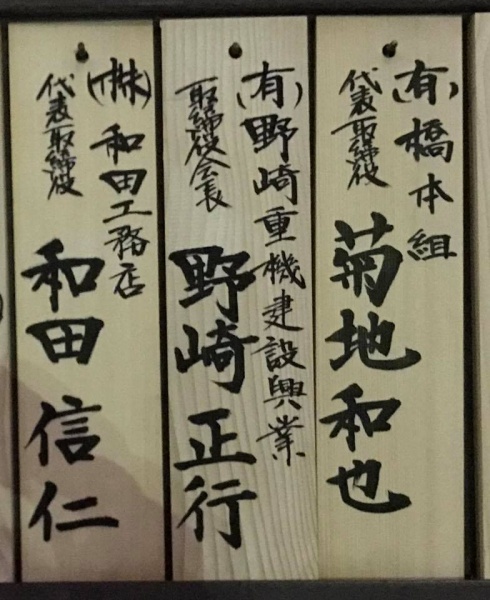 (有)橋本組
代表取締役
菊地和也
(有)野崎重機建設興業
取締役会長
野崎正行
(株)和田工務店
代表取締役
和田信仁